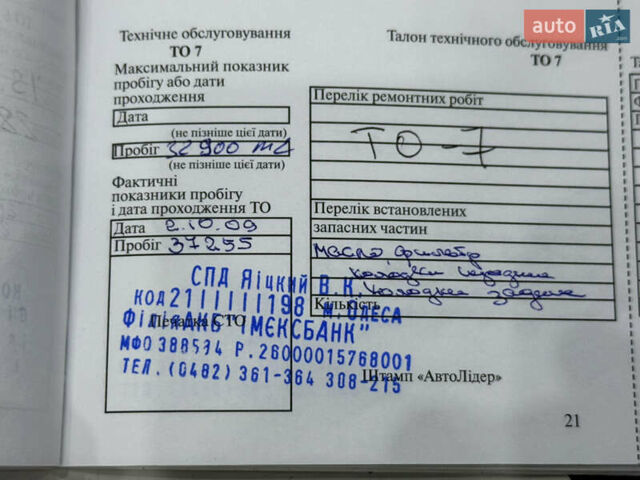 auto RIA
Технічне обслуговування
ТО 7
Максимальний показник
пробігу або дати
проходження
Дата
(не пізніше цієї дати)
Пробіг 32900
(не пізніше цієї дати)
Фактичні
показники пробігу
і дата проходження ТО
Дата 2.10.09
Пробіг 37255
СПД Яіцкий В.К.
КОД 2111111198 М.ОДЕСА
ФІЛІЯ АКБ "ІМЕКСБАНК"
Печатка СТО
МФО 388584 Р.26000015768001
ТЕЛ. (0482) 361-364 308-215
Талон технічного обслуговування
ТО 7
Перелік ремонтних робіт
ТО-7
Перелік встановлених
запасних частин
масло фильтр
колодки передние
колодки задние
Кількість
Штамп «АвтоЛідер»
21